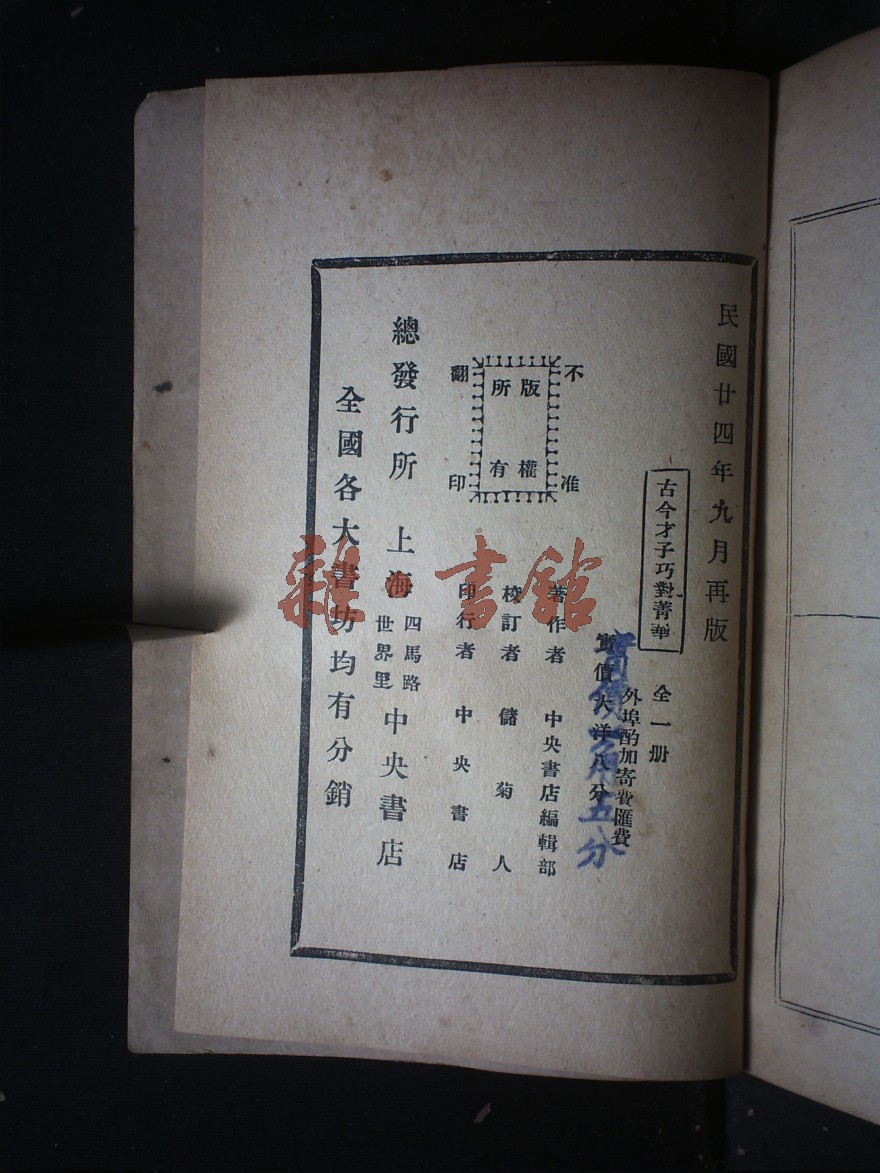 民國廿四年九月再版
古今才子巧對菁華
全一册
外埠酌加寄費匯費
實價大洋八分
著作者 中央書店編輯部
校訂者 儲菊人
印行者 中央書店
不准
翻印
版權
所有
總發行所 上海 四馬路
世界里 中央書店
全國各大書坊均有分銷
實價
五分
雜書館